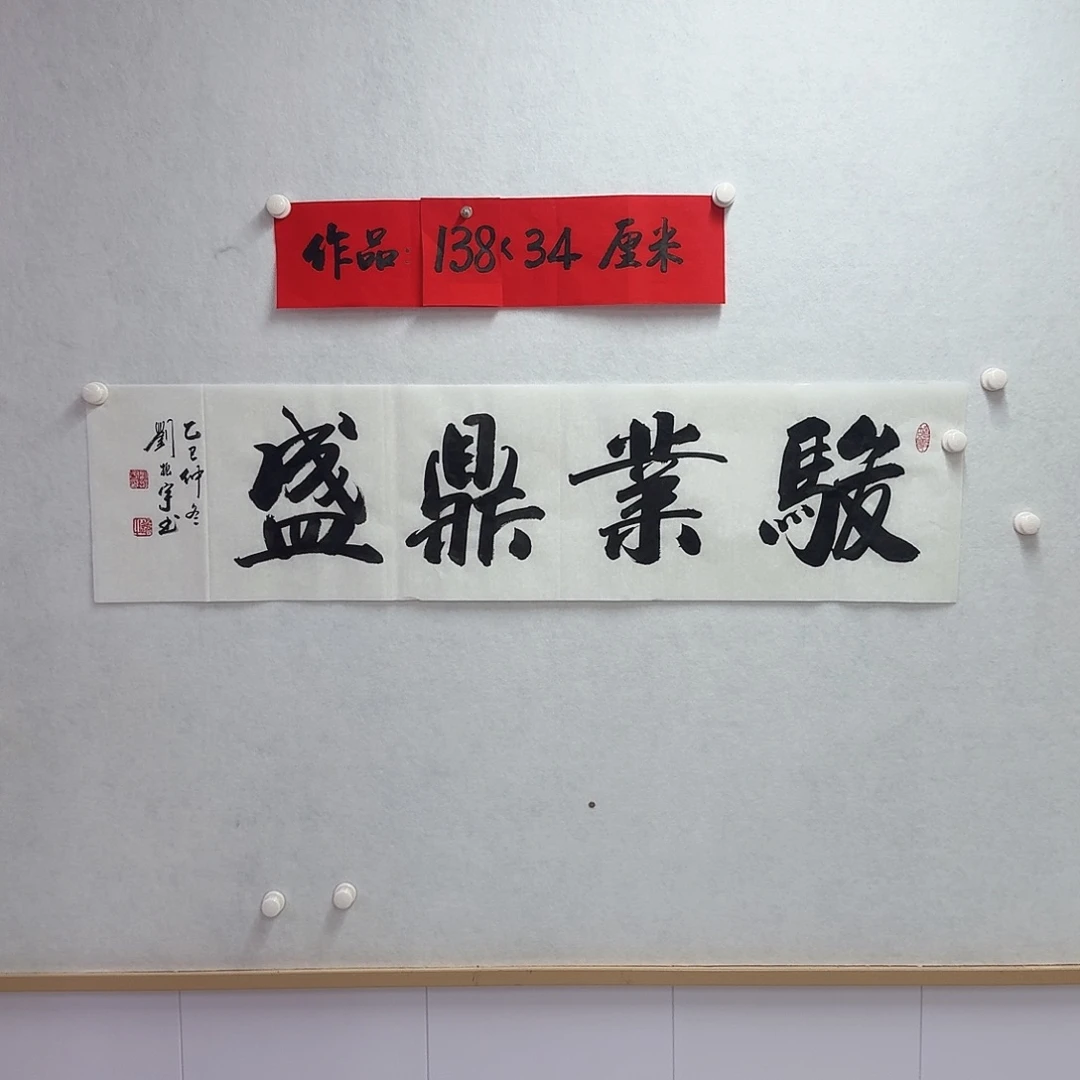 作品 138×34 厘米
駿業鼎盛
乙巳仲冬
劉振宇书